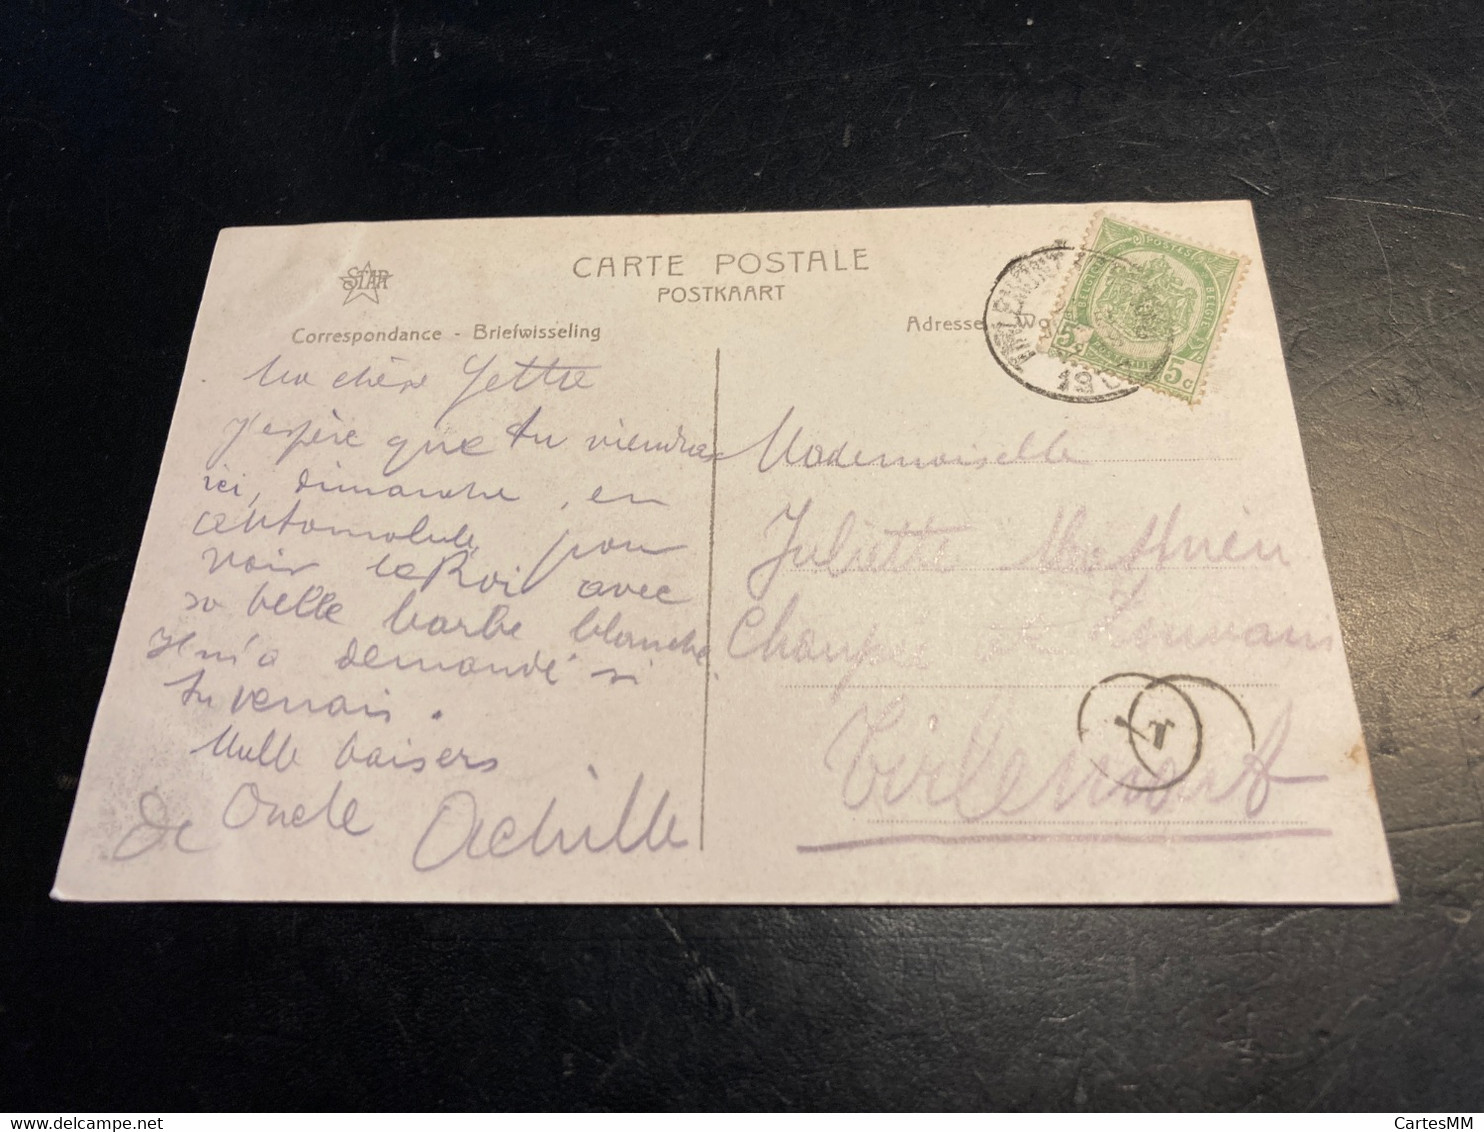 STAR
CARTE POSTALE
POSTKAART
Correspondance - Briefwisseling
Adresse
Ma chère Yette
J'espère que tu viendras
ici, dimanche, en
automobile, pour
voir le Roi avec
sa belle barbe blanche.
Il m'a demandé si
tu venais.
Mille baisers
de Oncle Achille
Mademoiselle
Juliette Mathieu
Tirlemont
TIRLEMONT
POSTES
BELGIQUE
BELGIË
5c 5c
T
CartesMM